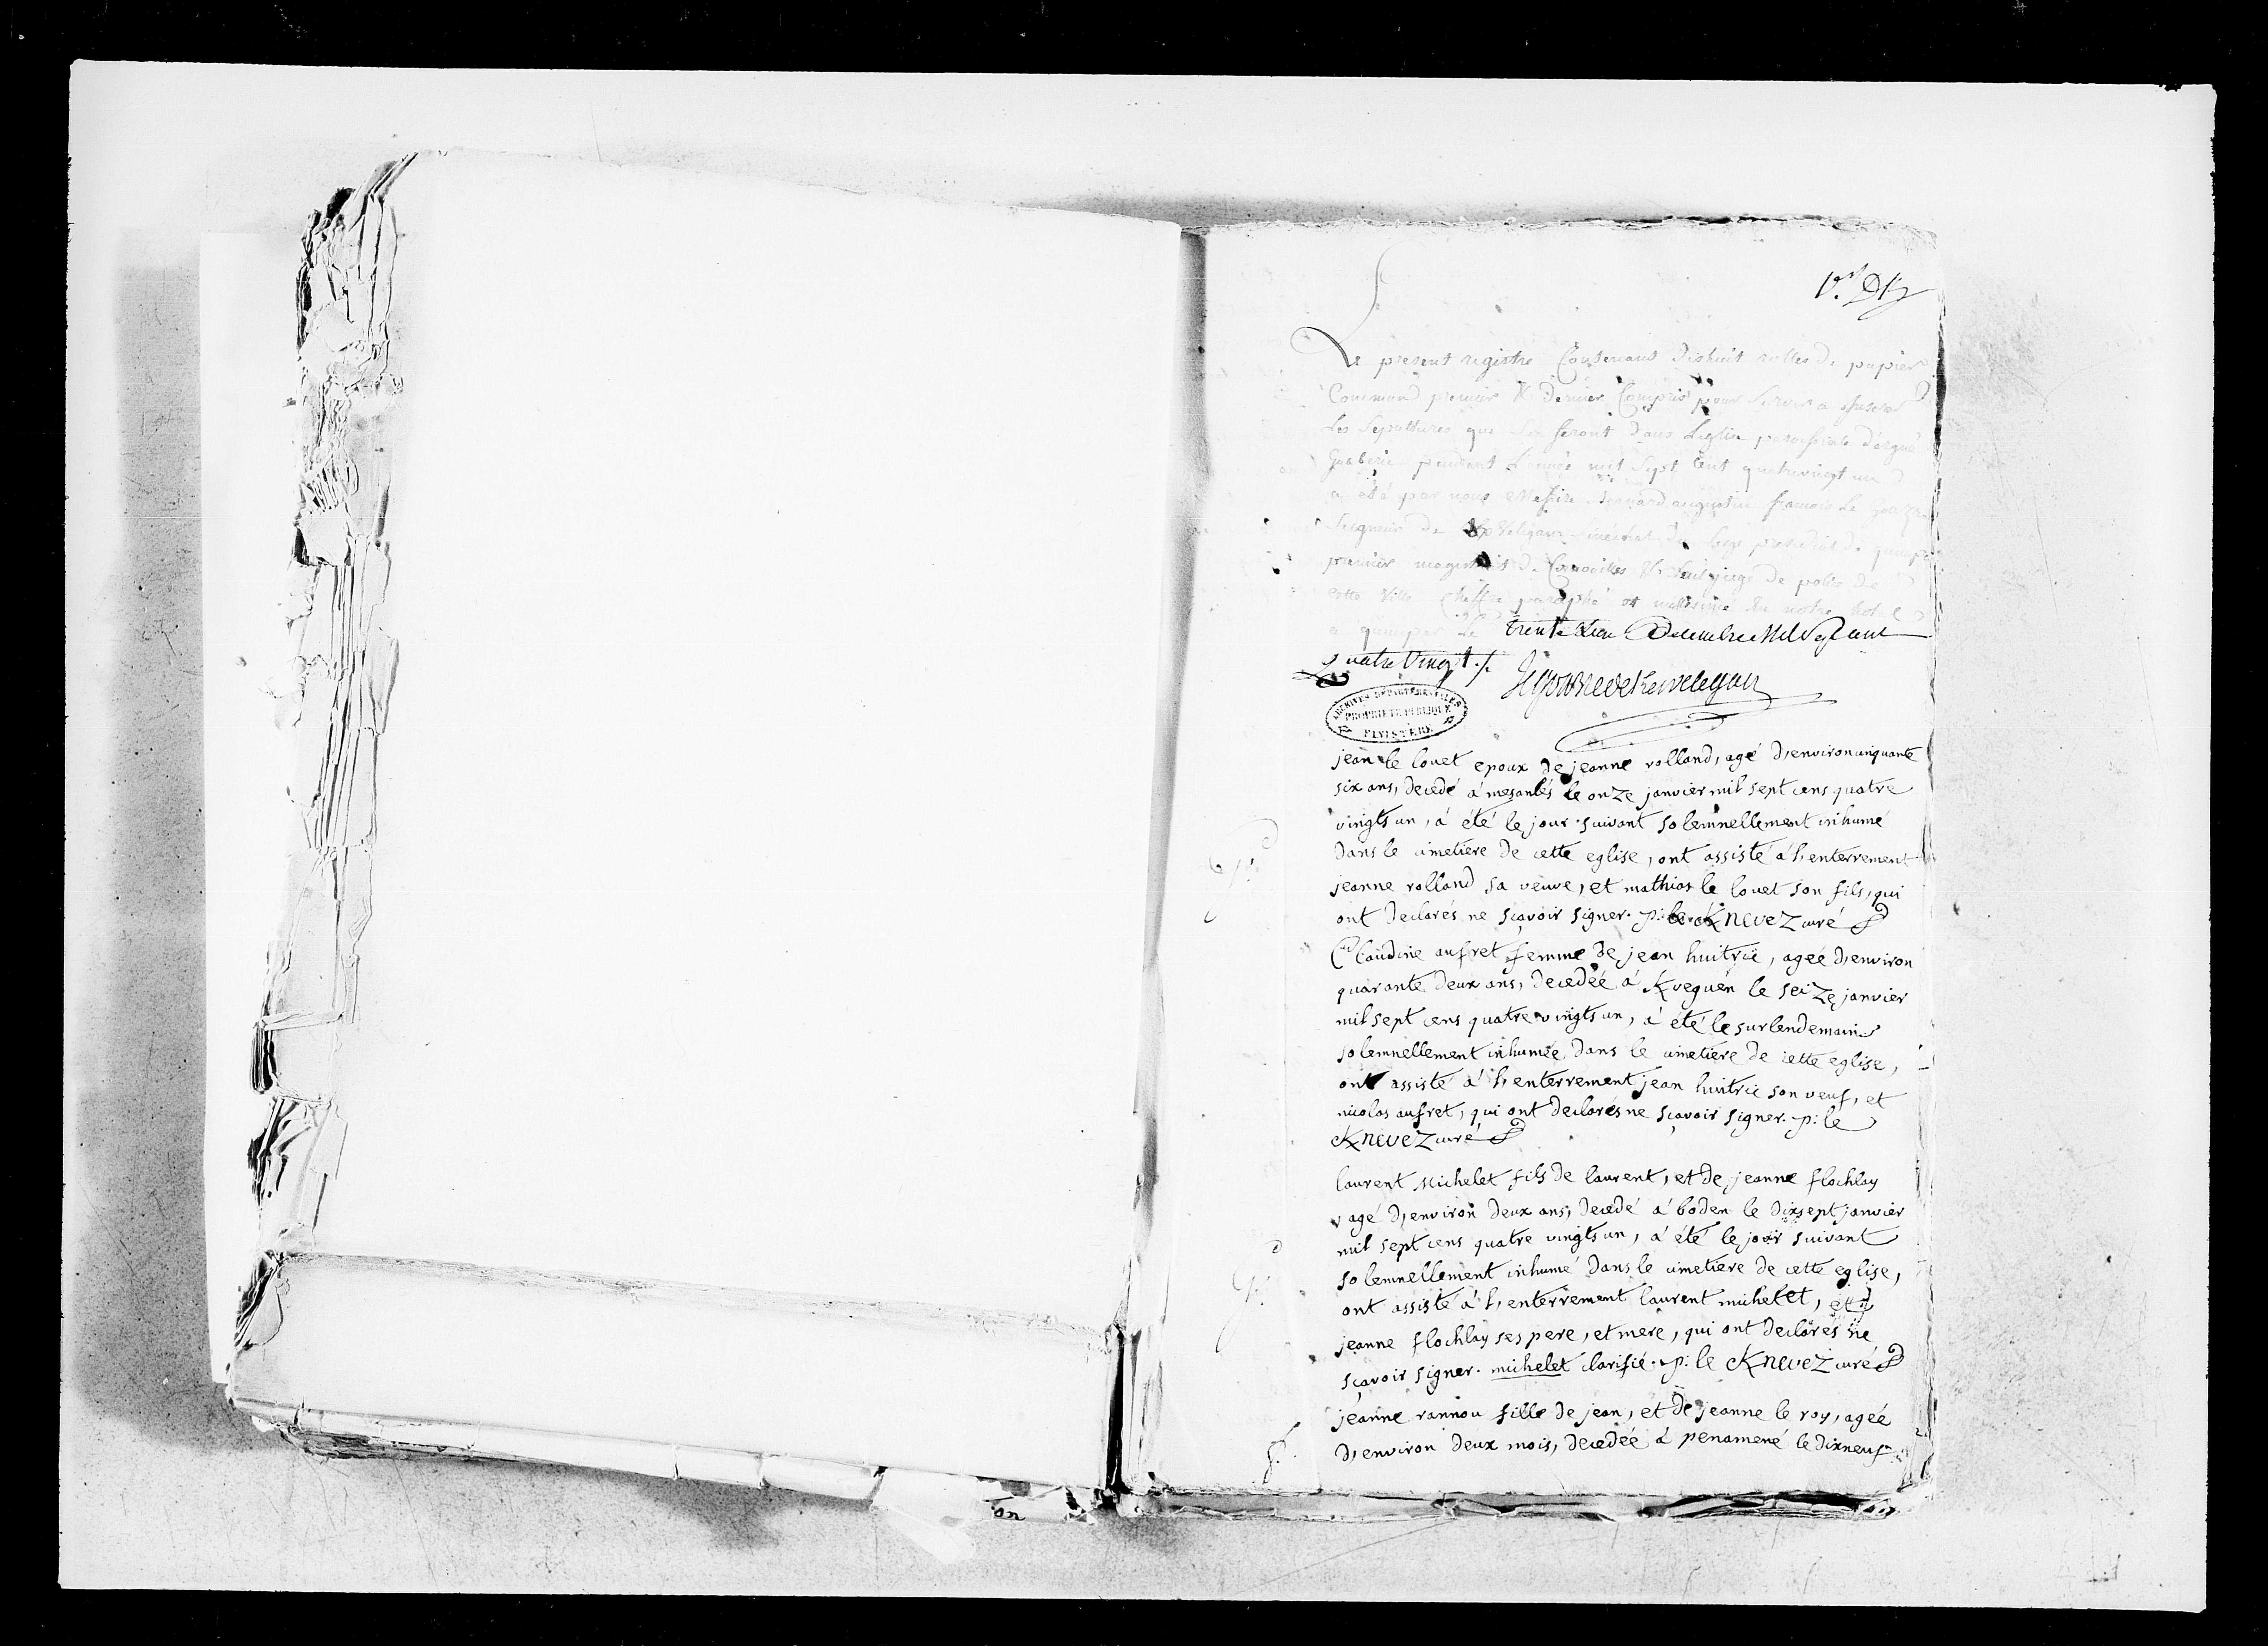 Le present registre Contenant dixhuit rolles de papier
Commun premier & dernier Compris pour servir a inserer
les sepultures qui se feront dans Leglise paroissiale d'ergué
Gaberic pendant L'année mil sept Cent quatrevingt un
a été par nous Messire augustin francois Le Goazre
Seigneur de Kervelegan senechal du siege presidial de quimper
premier magistrat de Cornouilles & seul juge de police de
cette Ville Chiffré paraphé et millesimé en notre hotel
a quimper Le trente Decembre Mil Sept Cent
quatre Vingt ./.
Le goazre de Kervelegan
ARCHIVES DÉPARTEMENTALES
PROPRIÉTÉ PUBLIQUE
FINISTÈRE
jean le louet epoux de jeanne rolland, agé d,environ cinquante
six ans, decedé á mezanlés le onze janvier mil sept cens quatre
vingts un, á été le jour suivant solemnellement inhumé
dans le cimetiere de cette eglise, ont assisté á l,enterrement
jeanne rolland sa veuve, et mathias le louet son fils, qui
ont declarés ne sçavoir signer. p: le Knevez curé
Claudine aufret femme de jean huitric, agée d,environ
quarante deux ans, decedée á Kveguén le seize janvier
mil sept cens quatre vingts un, á été le surlendemain
solemnellement inhumée dans le cimetiere de cette eglise,
ont assisté á l,enterrement jean huitric son veuf, et
nicolas aufret, qui ont declarés ne sçavoir signer. p: le
Knevez curé
laurent Michelet fils de laurent, et de jeanne flochlay
agé d,environ deux ans, decedé á boden le dixsept janvier
mil sept cens quatre vingts un, á été le jour suivant
solemnellement inhumé dans le cimetiere de cette eglise,
ont assisté á l,enterrement laurent michelet, et
jeanne flochlay ses pere, et mere, qui ont declarés ne
sçavoir signer. michelet clarifié. p: le Knevez curé
jeanne rannou fille de jean, et de jeanne le roy, agée
d,environ deux mois, decedée á penamené le dixneuf